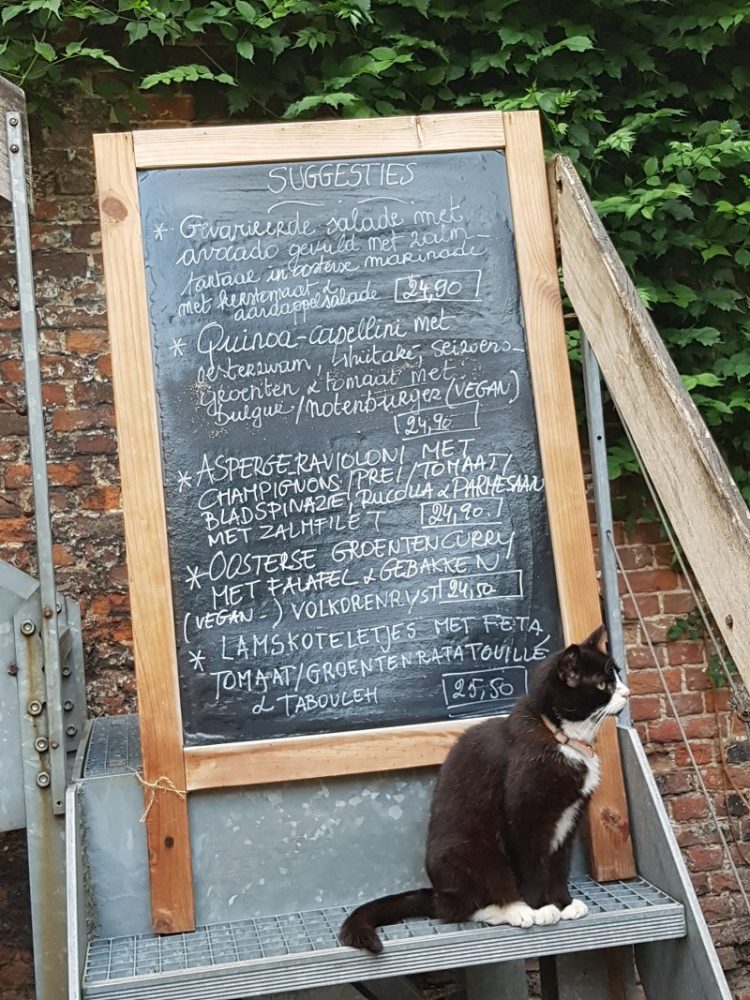 SUGGESTIES
* Gevarieerde salade met
avocado gevuld met zalm-
tartaar in oosterse marinade
met kerstomaat &
aardappelsalade 24,90
* Quinoa-capellini met
oesterzwam, shiitake, seizoens-
groenten & tomaat met
Bulgur/notenburger (VEGAN)
24,90
* ASPERGE-RAVIOLONI MET
CHAMPIGNONS/PREI/TOMAAT/
BLADSPINAZIE, RUCOLLA & PARMESAAN
MET ZALMFILET 24,90.
* OOSTERSE GROENTENCURRY
MET FALAFEL & GEBAKKEN
(VEGAN-) VOLKORENRIJST 24,50
* LAMSKOTELETJES MET FETA,
TOMAAT/GROENTENRATATOUILLE
& TABOULEH 25,50